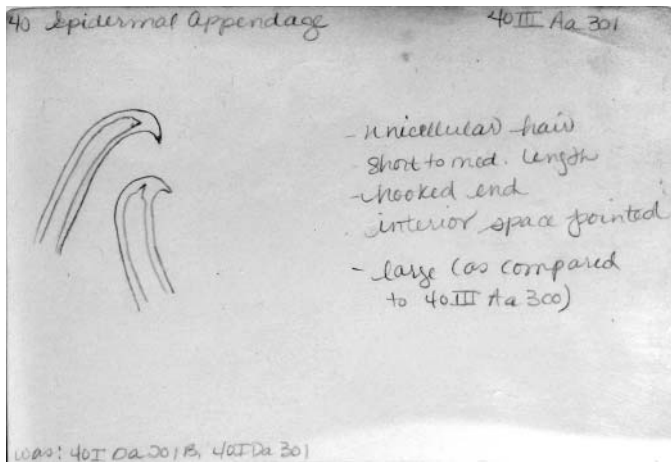 40 Epidermal Appendage
40III Aa 301
- unicellular hair
short to med. length
- hooked end
interior space pointed
- large (as compared
to 40III Aa 300)
was: 40I Da 201B, 40I Da 301